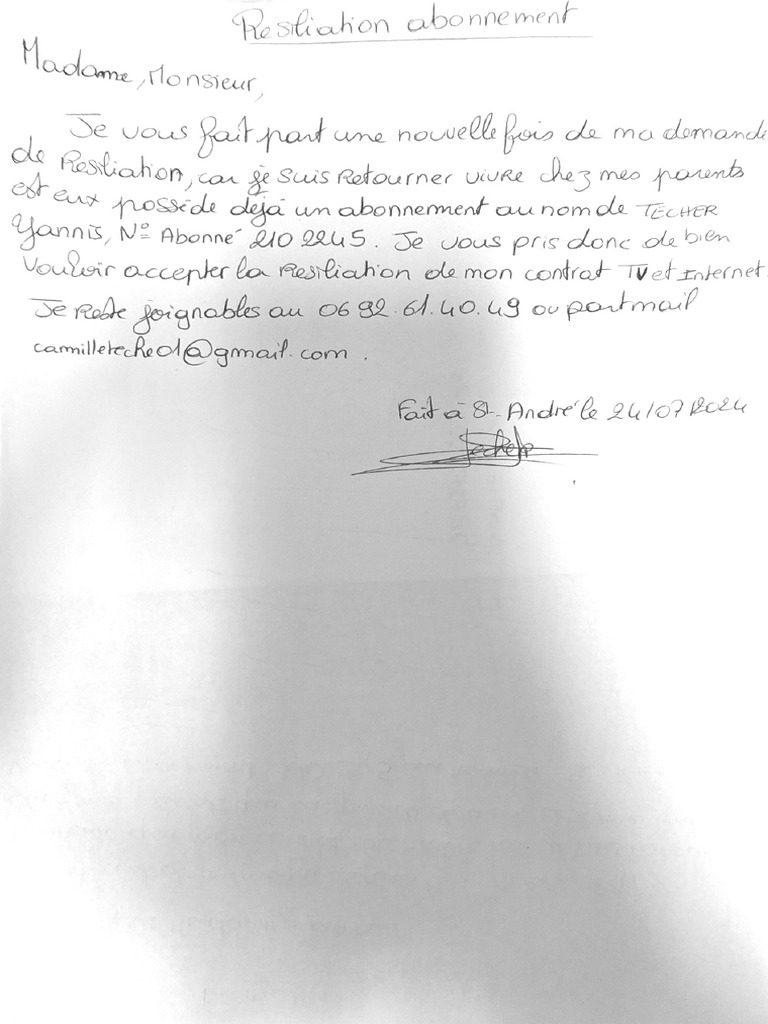 Resiliation abonnement
Madame, Monsieur,
Je vous fait part une nouvelle fois de ma demande
de Resiliation, car je suis Retourner vivre chez mes parents
est eux possède déjà un abonnement au nom de TECHER
Yannis, N° Abonné 210 2245. Je vous pris donc de bien
vouloir accepter la Resiliation de mon contrat TV et Internet.
Je Reste joignables au 06 92.61.40.49 ou part mail
camilleteche01@gmail.com.
Fait à St-André le 24/07/2024